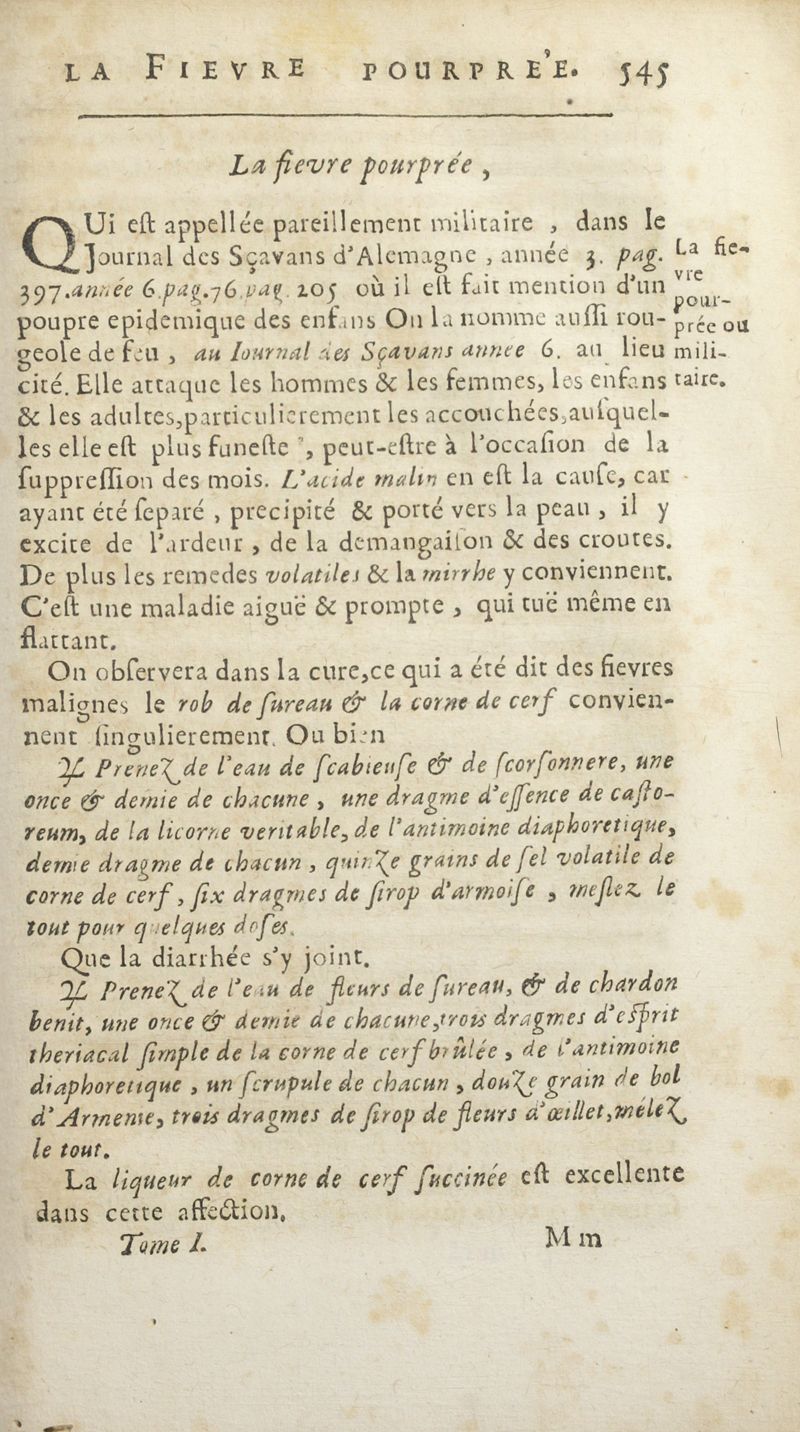 LA FIEVRE POURPRE'E. 545
La fievre pourprée ,
QUi eſt appellée pareillement militaire , dans le
Journal des Sçavans d'Alemagne , année 3. pag.
397.année 6.pag.76.pag. 205 où il eſt fait mention d'un
poupre epidemique des enfans On la nomme auſſi rou-
geole de feu , au Iournal des Sçavans annee 6. au lieu
cité. Elle attaque les hommes & les femmes, les enfans
& les adultes,particulierement les accouchées,auſquel-
les elle eſt plus funeſte , peut-eſtre à l'occaſion de la
ſuppreſſion des mois. L'acide malin en eſt la cauſe, car
ayant été ſeparé , precipité & porté vers la peau , il y
excite de l'ardeur , de la demangaiſon & des croutes.
De plus les remedes volatiles & la mirrhe y conviennent.
C'eſt une maladie aiguë & prompte , qui tuë même en
flattant.
La fie-
vre
pour-
prée ou
mili-
taire.
On obſervera dans la cure,ce qui a été dit des fievres
malignes le rob de ſureau & la corne de cerf convien-
nent ſingulierement. Ou bien
℞ Prenez de l'eau de ſcabieuſe & de ſcorſonnere, une
once & demie de chacune , une dragme d'eſſence de caſto-
reum, de la licorne veritable, de l'antimoine diaphoretique,
demie dragme de chacun , quinze grains de ſel volatile de
corne de cerf , ſix dragmes de ſirop d'armoiſe , meſlez le
tout pour quelques doſes.
Que la diarrhée s'y joint.
℞ Prenez de l'eau de fleurs de ſureau, & de chardon
benit, une once & demie de chacune,trois dragmes d'eſprit
theriacal ſimple de la corne de cerf brûlée , de l'antimoine
diaphoretique , un ſcrupule de chacun , douze grain de bol
d'Armenie, trois dragmes de ſirop de fleurs d'œillet,mélez
le tout.
La liqueur de corne de cerf ſuccinée eſt excellente
dans cette affection.
Tome I. M m